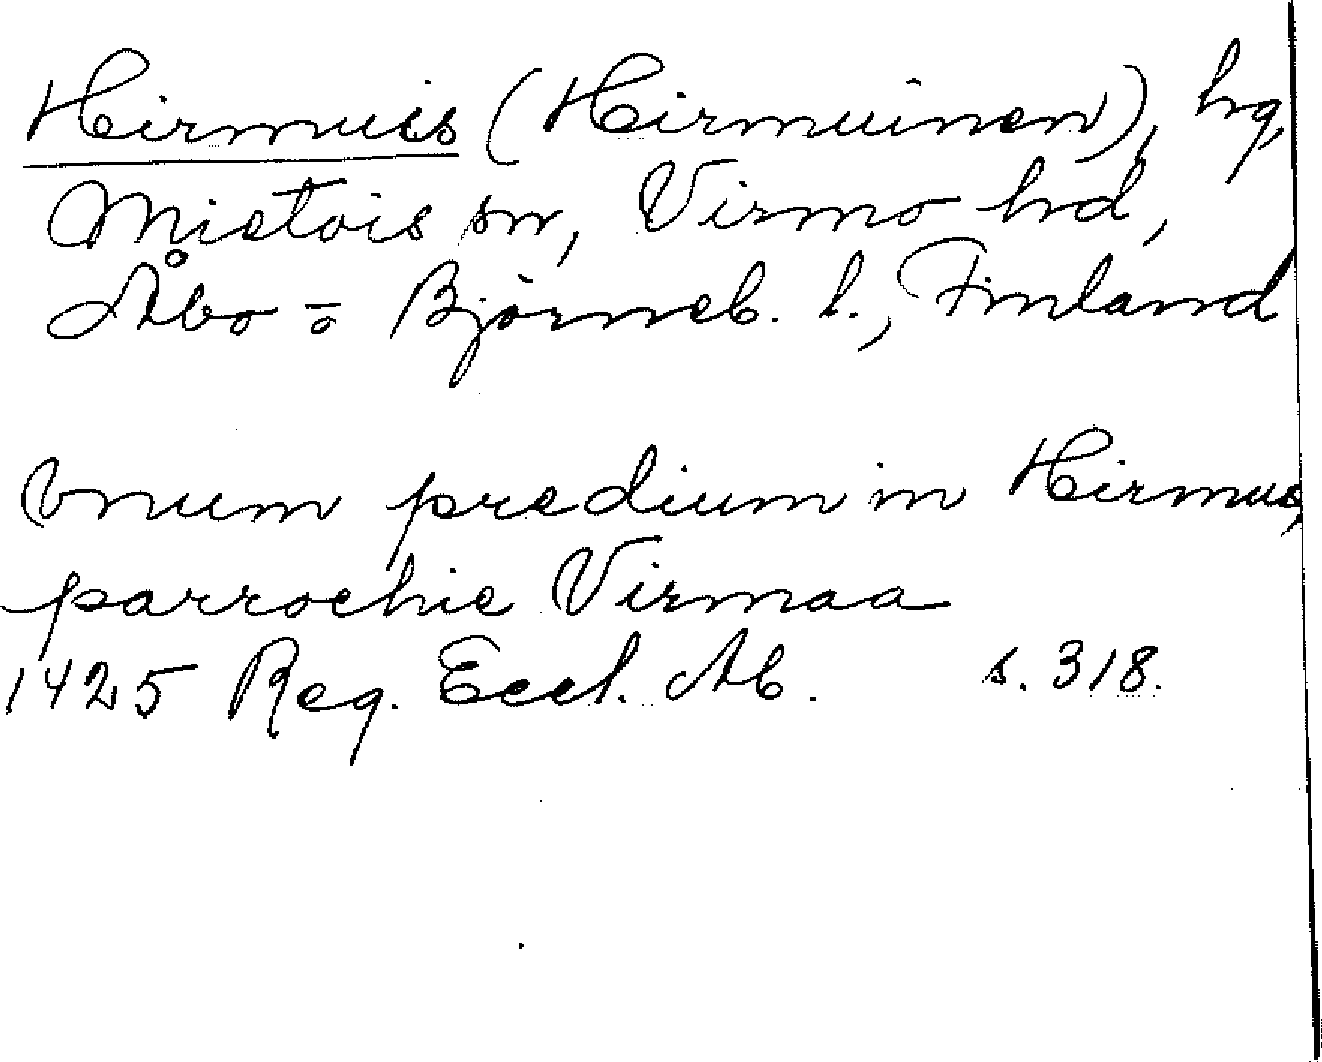 Hirmuis (Hirmuinen), hg,
Mietois sn, Virmo hd,
Åbo o Björneb. l., Finland
Vnum predium in Hirmus,
parrochie Virmaa
1425 Reg. Eccl. Ab. s. 318.